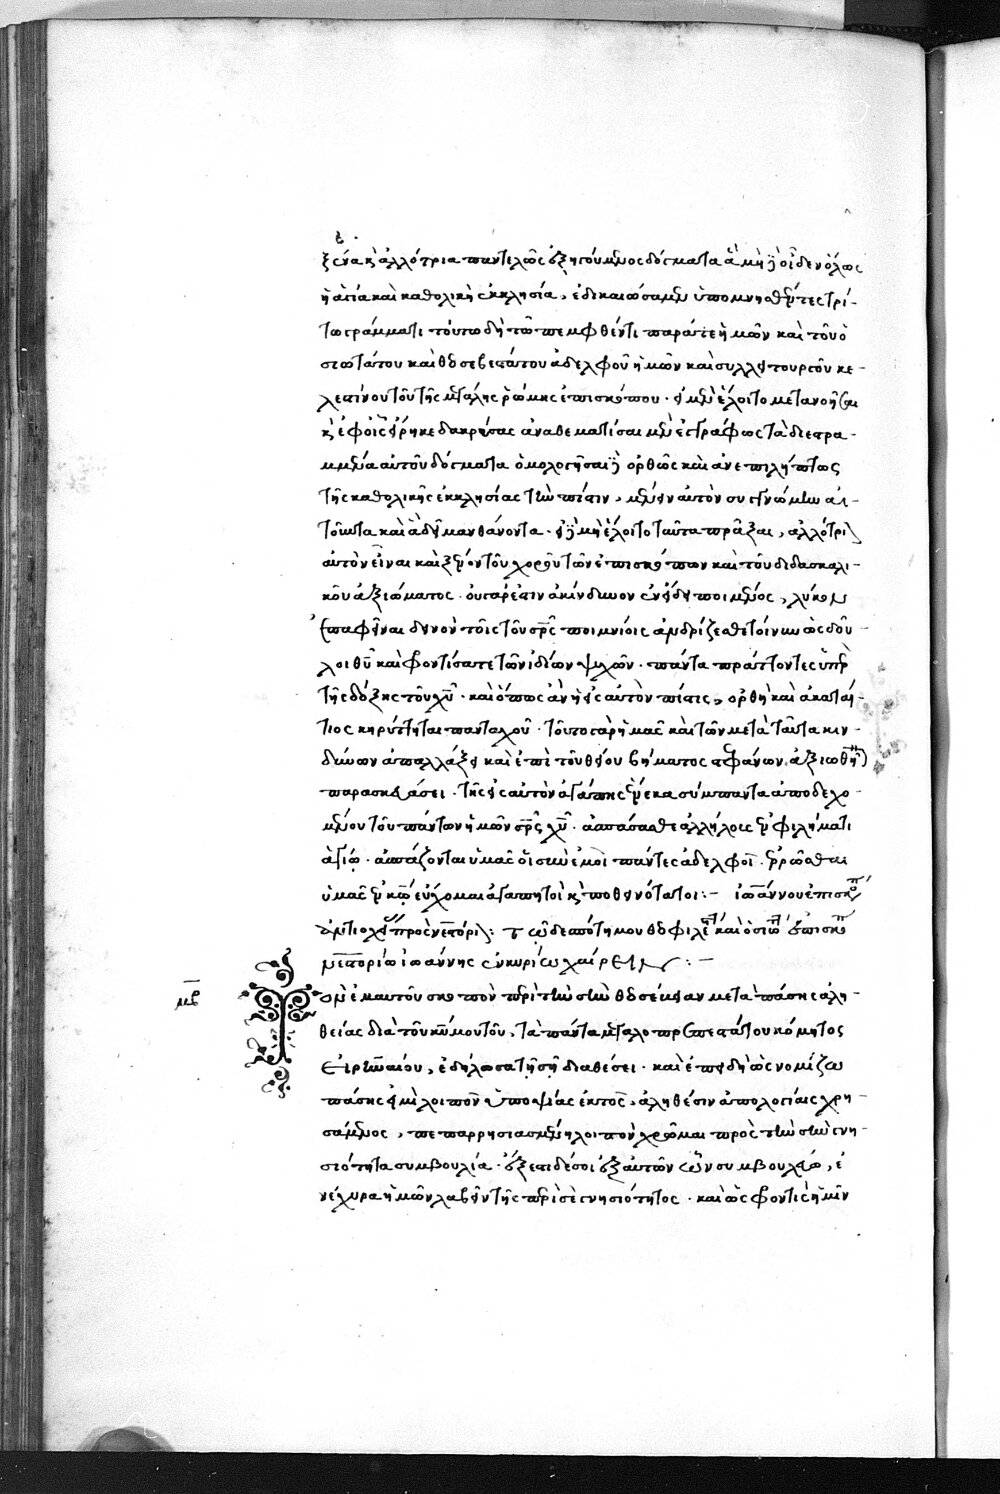 ξένα κ ἀλλότρια παντελῶς ἐξηγούμενος δόγματα ἃ μὴ δὲ οἶδεν ὅλως
ἡ ἁγία καὶ καθολικὴ ἐκκλησία, ἐδικαιώσαμεν ὑπομνησθέντες τρί-
τω γράμματι τούτω δὴ τῶ πεμφθέντι παρά τε ἡμῶν καὶ τοῦ ὁ
σιωτάτου καὶ θεοσεβεστάτου ἀδελφοῦ ἡμῶν καὶ συλλειτουργοῦ κε-
λεστίνου τοῦ τῆς μεγάλης ῥώμης ἐπισκόπου. εἰ μὲν ἕλοιτο μετανοῆσαι
κ ἐφ οἷς εἴρηκε δακρύσας ἀναθεματίσαι μὲν ἐγγράφως τὰ διεστρα-
μμένα αὐτοῦ δόγματα ὁμολογῆσαι δὲ ὀρθῶς καὶ ἀνεπιλήπτως
τῆς καθολικῆς ἐκκλησίας τὴν πίστιν, μένειν αὐτὸν συγγνώμην αἰ-
τοῦντα καὶ ἃ δεῖ μανθάνοντα. εἰ δὲ μὴ ἕλοιτο ταῦτα πρᾶξαι, ἀλλότρι
αὐτὸν εἶναι καὶ ξένον τοῦ χοροῦ τῶν ἐπισκόπων καὶ τοῦ διδασκαλι-
κοῦ ἀξιώματος. οὐ γάρ ἐστιν ἀκίνδυνον ἐν εἴδει ποιμένος, λύκον
ἐπαφεῖναι δεινὸν τοῖς τοῦ σρς ποιμνίοις ἀνδρίζεσθε τοίνυν ὡς δοῦ-
λοι θυ καὶ φροντίσατε τῶν ἰδίων ψυχῶν. πάντα πράττοντες ὑπὲρ
τῆς δόξης τοῦ χυ. καὶ ὅπως ἂν ἡ εἰς αὐτὸν πίστις, ὀρθὴ καὶ ἀκαταί-
τιος κηρύττηται πανταχοῦ. τοῦτο γὰρ ἡμᾶς καὶ τῶν μετὰ ταῦτα κιν-
δύνων ἀπαλλάξει καὶ ἐπὶ τοῦ θείου βήματος στεφάνων ἀξιωθῆν
παρασκευάσει. τῆς εἰς αὐτὸν ἀγάπης ἕνεκα σύμπαντα ἀποδεχο-
μένου τοῦ πάντων ἡμῶν σρς χυ. ἀσπάσασθε ἀλλήλους ἐν φιλήματι
ἁγίω. ἀσπάζονται ὑμᾶς οἱ σὺν ἐμοὶ πάντες ἀδελφοί. ἐρρῶσθαι
ὑμᾶς ἐν κω εὔχομαι ἀγαπητοὶ κ ποθεινότατοι:– ἰωάννου ἐπισκόπ
ἀντιοχεί πρὸς νεστόρι: τῶ δεσπότη μου θεοφιλε καὶ ὁσιωτ ἐπισκόπ
νεστορίω ἰωάννης ἐν κυρίω χαίρειν:–
μβ
ὸν ἐμαυτοῦ σκοπὸν περὶ τὴν σὴν θεοσέβειαν μετὰ πάσης ἀλη-
θείας διὰ τοῦ κυ μου τοῦ, τὰ πάντα μεγαλοπρεπεστάτου κόμητος
εἰρηναίου, ἐδήλωσα τῆ σῆ διαθέσει. καὶ ἐπειδὴ ὡς νομίζω
πάσης εἰμὶ λοιπὸν ὑποψίας ἐκτὸς, ἀληθέσιν ἀπολογίαις χρη-
σάμενος, πεπαρρησιασμένη λοιπὸν χρῶμαι πρὸς τὴν σὴν γνη-
σιότητα συμβουλία. ἔξεστι δέ σοι ἐξ αὐτῶν ὧν συμβουλεύω, ἐ
νέχυρα ἡμῶν λαβεῖν τῆς περὶ σὲ γνησιότητος. καὶ ὡς φροντὶς ἡμῖν